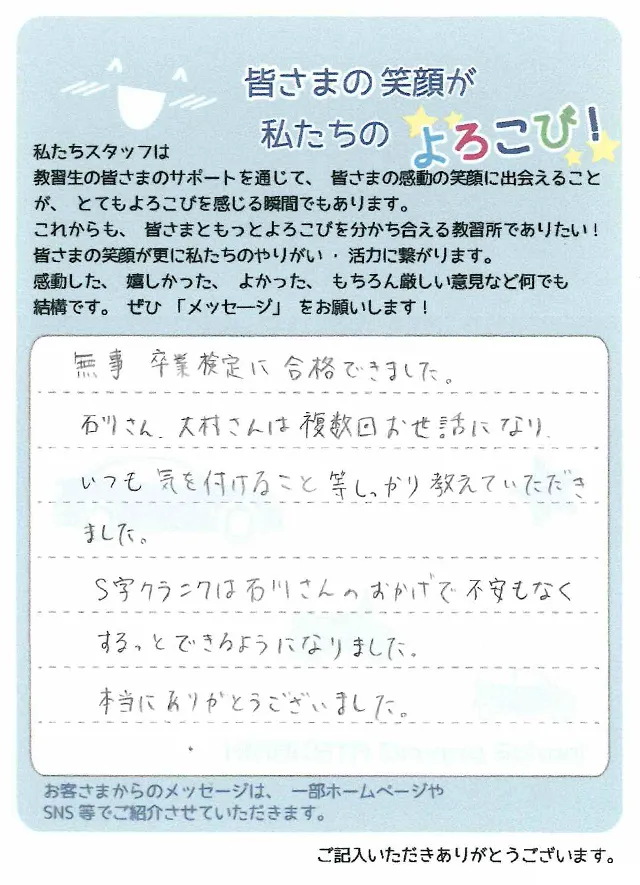 皆さまの笑顔が
私たちの よろこび!
私たちスタッフは
教習生の皆さまのサポートを通じて、 皆さまの感動の笑顔に出会えること
が、 とてもよろこびを感じる瞬間でもあります。
これからも、 皆さまともっとよろこびを分かち合える教習所でありたい!
皆さまの笑顔が更に私たちのやりがい・活力に繋がります。
感動した、 嬉しかった、 よかった、 もちろん厳しい意見など何でも
結構です。 ぜひ 「メッセージ」 をお願いします!
無事 卒業検定に 合格できました。
石川さん、大村さんは 複数回お世話になり、
いつも 気を付けること 等しっかり教えていただき
ました。
S字クランクは石川さんのおかげで不安もなく
するっとできるようになりました。
本当にありがとうございました。
お客さまからのメッセージは、 一部ホームページや
SNS等でご紹介させていただきます。
ご記入いただきありがとうございます。